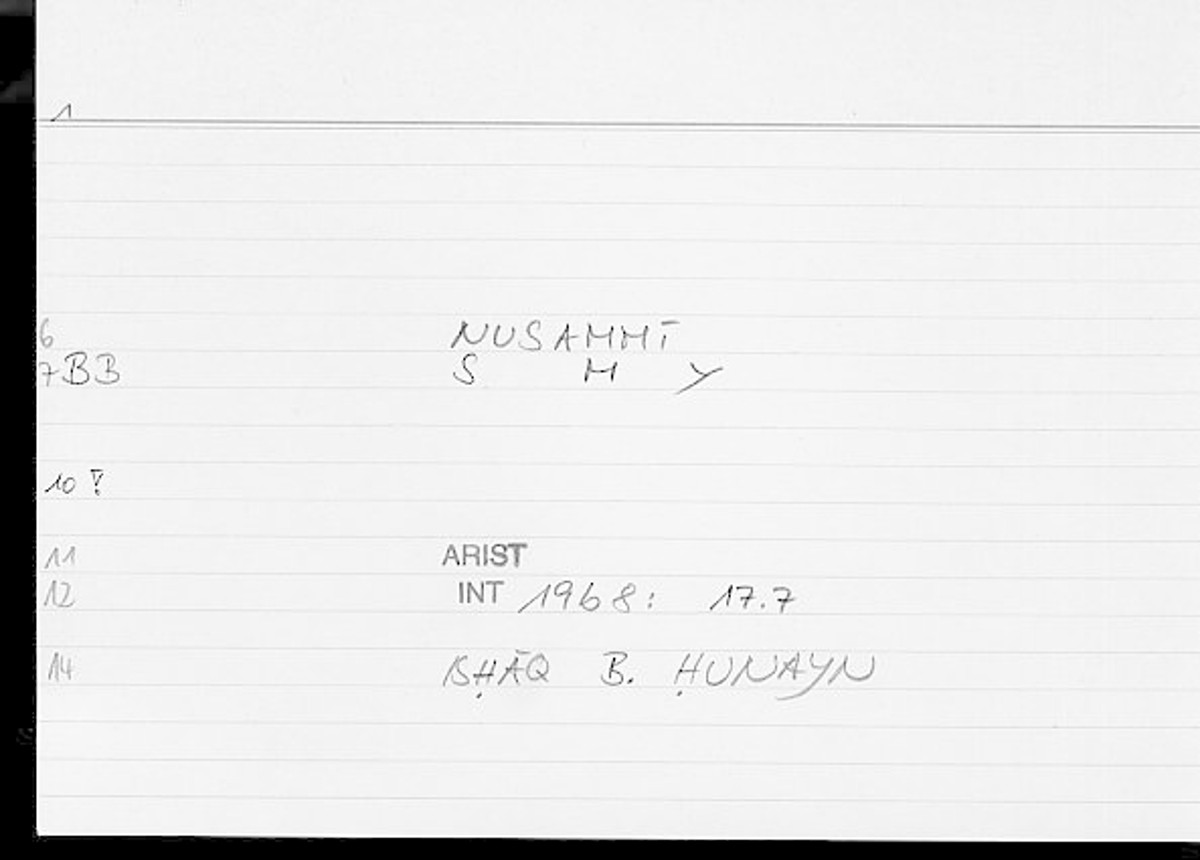 1
6 NUSAMMĪ
7BB S M Y
10
11 ARIST
12 INT 1968: 17.7
14 ISḤĀQ B. ḤUNAYN